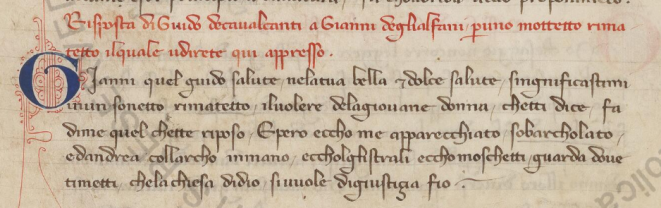 Risposta di Guido decavalcanti a Gianni deglialfani p uno mottetto rima
tetto ilquale udirete qui appresso .
Gianni quel guido salute / nelatua bella & dolce salute / singnificastimi
inun sonetto rimatetto / iluolere delagiouane donna / chetti dice / fa
dime quel chette riposo / Epero eccho me apparecchiato / sobarcholato /
edandrea collarcho inmano / eccholglistrali eccho moschetti / guarda doue
timetti / chelachiesa didio / siuuole digiustizia fio .